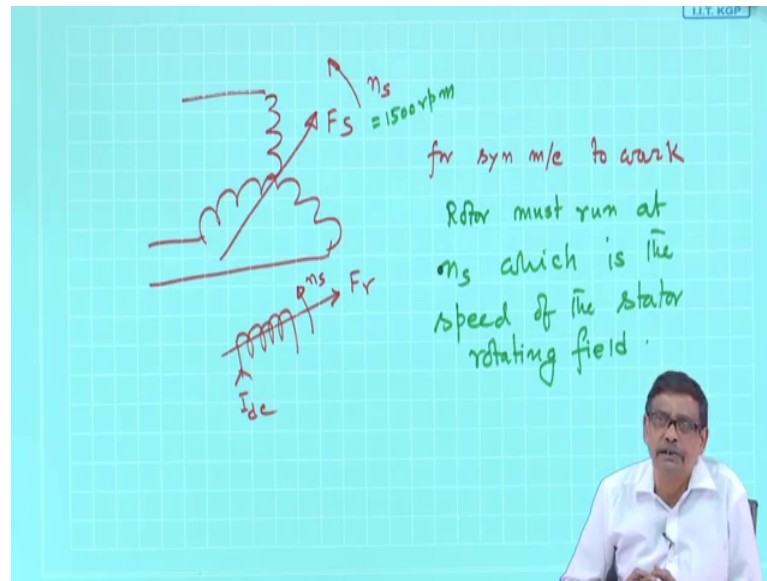 I.I.T. KGP
ns
Fs = 1500 rpm
for syn m/c to work
Rotor must run at
ns which is the
speed of the stator
rotating field.
ns
Fr
Idc